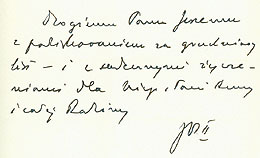 Drogiemu Panu Jerzemu
z podziękowaniem za grudniowy
list – i z serdecznymi życze-
niami dla Niego, Pani Anny
i całej Rodziny
JPII